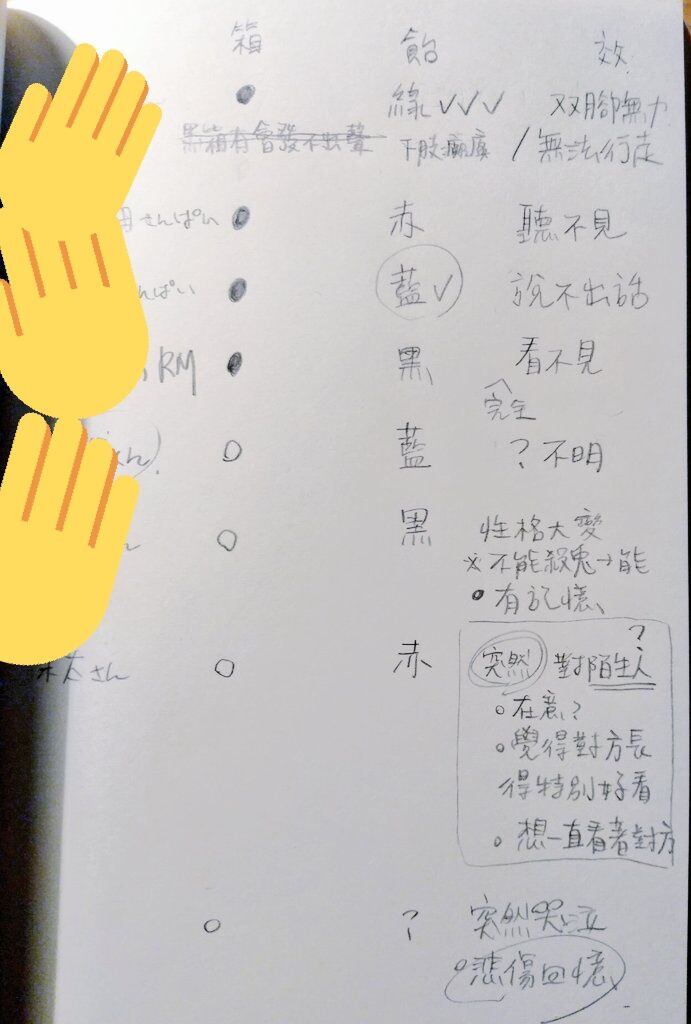 箱 飴 效
● 綠 ✓✓✓ 双腳無力
黑箱有會發不出聲 下肢癱瘓 / 無法行走
さんぱい ● 赤 聽不見
んぱい ● 藍 ✓ 說不出話
RM ● 黑 看不見
完全
くん ○ 藍 ? 不明
ん ○ 黑 性格大變
※不能殺鬼→能
● 有記憶
?
さん ○ 赤 突然 對陌生人
○ 在意?
○ 覺得對方長
得特別好看
○ 想一直看著對方
○ ? 突然哭泣
○悲傷回憶